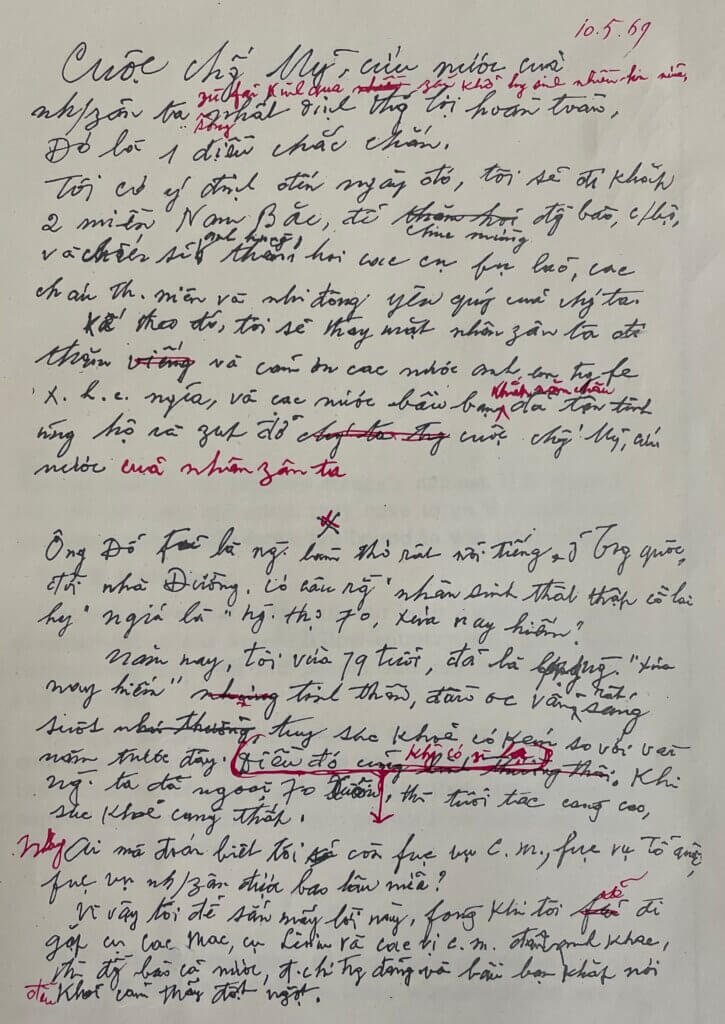 10.5.69
Cuộc chố] Mỹ, cứu nước của
zù fải kinh qua nhiều zan khổ hy sinh nhiều hơn nữa,
nh/zân ta nhất định thg lợi hoàn toàn,
song
Đó là 1 điều chắc chắn.
Tôi có ý định đến ngày đó, tôi sẽ đi khắp
2 miền Nam Bắc, để thăm hỏi đg bào, c/bộ,
chúc mừng
và chiến sĩ anh hùng, thăm hỏi các cụ fụ lão, các
cháu th. niên và nhi đồng yêu quý của chg ta.
Kế theo đó, tôi sẽ thay mặt nhân zân ta đi
thăm viếng và cám ơn các nước anh em trg fe
x. h. c. ngĩa, và các nước bầu bạn khắp năm châu đã tận tình
ủng hộ và zúp đỡ chg ta trg cuộc chg Mỹ, cứu
nước của nhân zân ta
Ông Đỗ Fủ là ng. làm thơ rất nổi tiếng ở Trg quốc,
đời nhà Đường. Có câu rg "nhân sinh thất thập cổ lai
hy" ngĩa là "ng. thọ 70, xưa nay hiếm"
Năm nay, tôi vừa 79 tuổi, đã là lớp ng. "xưa
nay hiếm" nhưng tinh thần, đầu óc vẫn rất sáng
suốt như thường, tuy sức khoẻ có kém so với vài
năm trước đây. Điều đó cũng không có gì lạ. Khi
ng. ta đã ngoài 70 xuân, thì tuổi tác càng cao,
sức khoẻ càng thấp.
Nhưng ai mà đoán biết tôi sẽ còn fục vụ c. m., fục vụ Tổ quốc,
fục vụ nh/zân được bao lâu nữa?
Vì vậy tôi để sẵn mấy lời này, fòng khi tôi sẽ đi
gặp cụ Các Mác, cụ Lênin và các vị c. m. đàn anh khác,
thì đg bào cả nước, đ.chí trg đảng và bầu bạn khắp nơi
đều khỏi cảm thấy đột ngột.